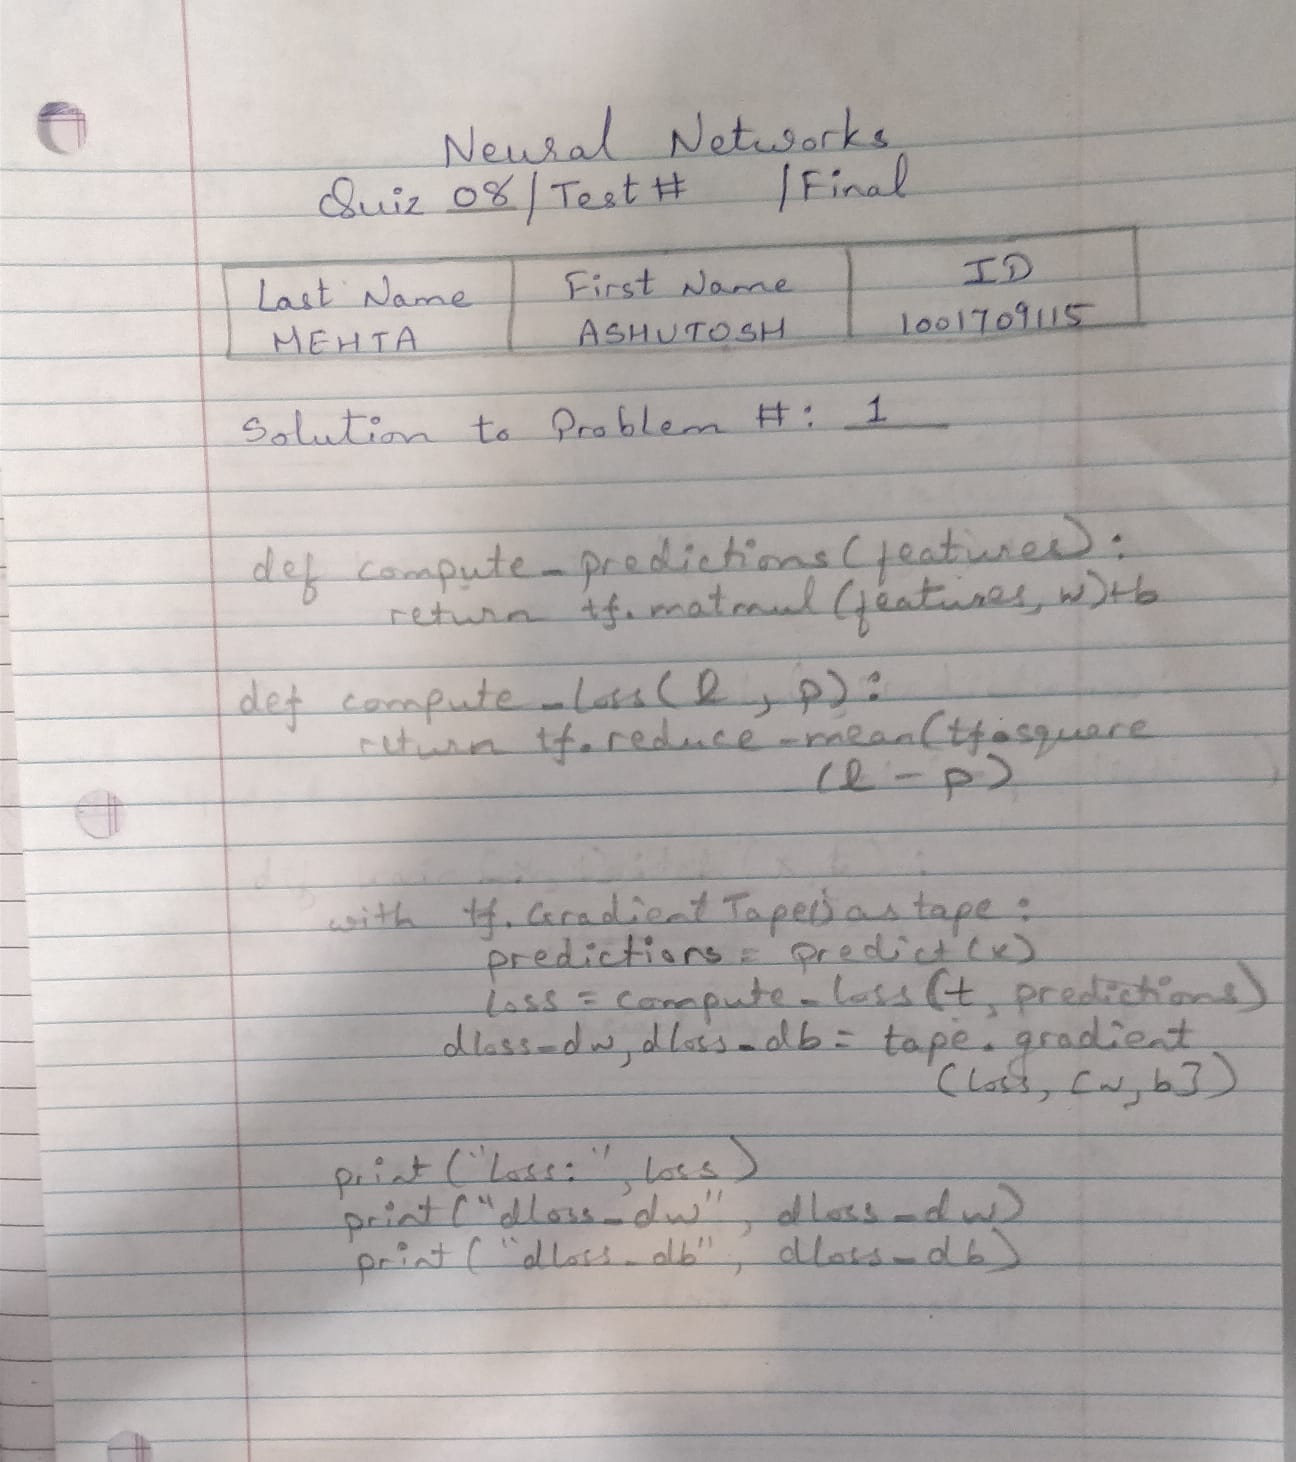 Neural Networks
Quiz 08/Test # /Final
Last Name First Name ID
MEHTA ASHUTOSH 1001709115
Solution to Problem #: 1
def compute_predictions(features):
return tf.matmul(features, w)+b
def compute_loss(l, p):
return tf.reduce_mean(tf.square
(l - p)
with tf.GradientTape() as tape:
predictions = predict(x)
loss = compute_loss(t, predictions)
dloss_dw, dloss_db = tape.gradient
(loss, [w, b])
print("loss:", loss)
print("dloss_dw", dloss_dw)
print("dloss_db", dloss_db)